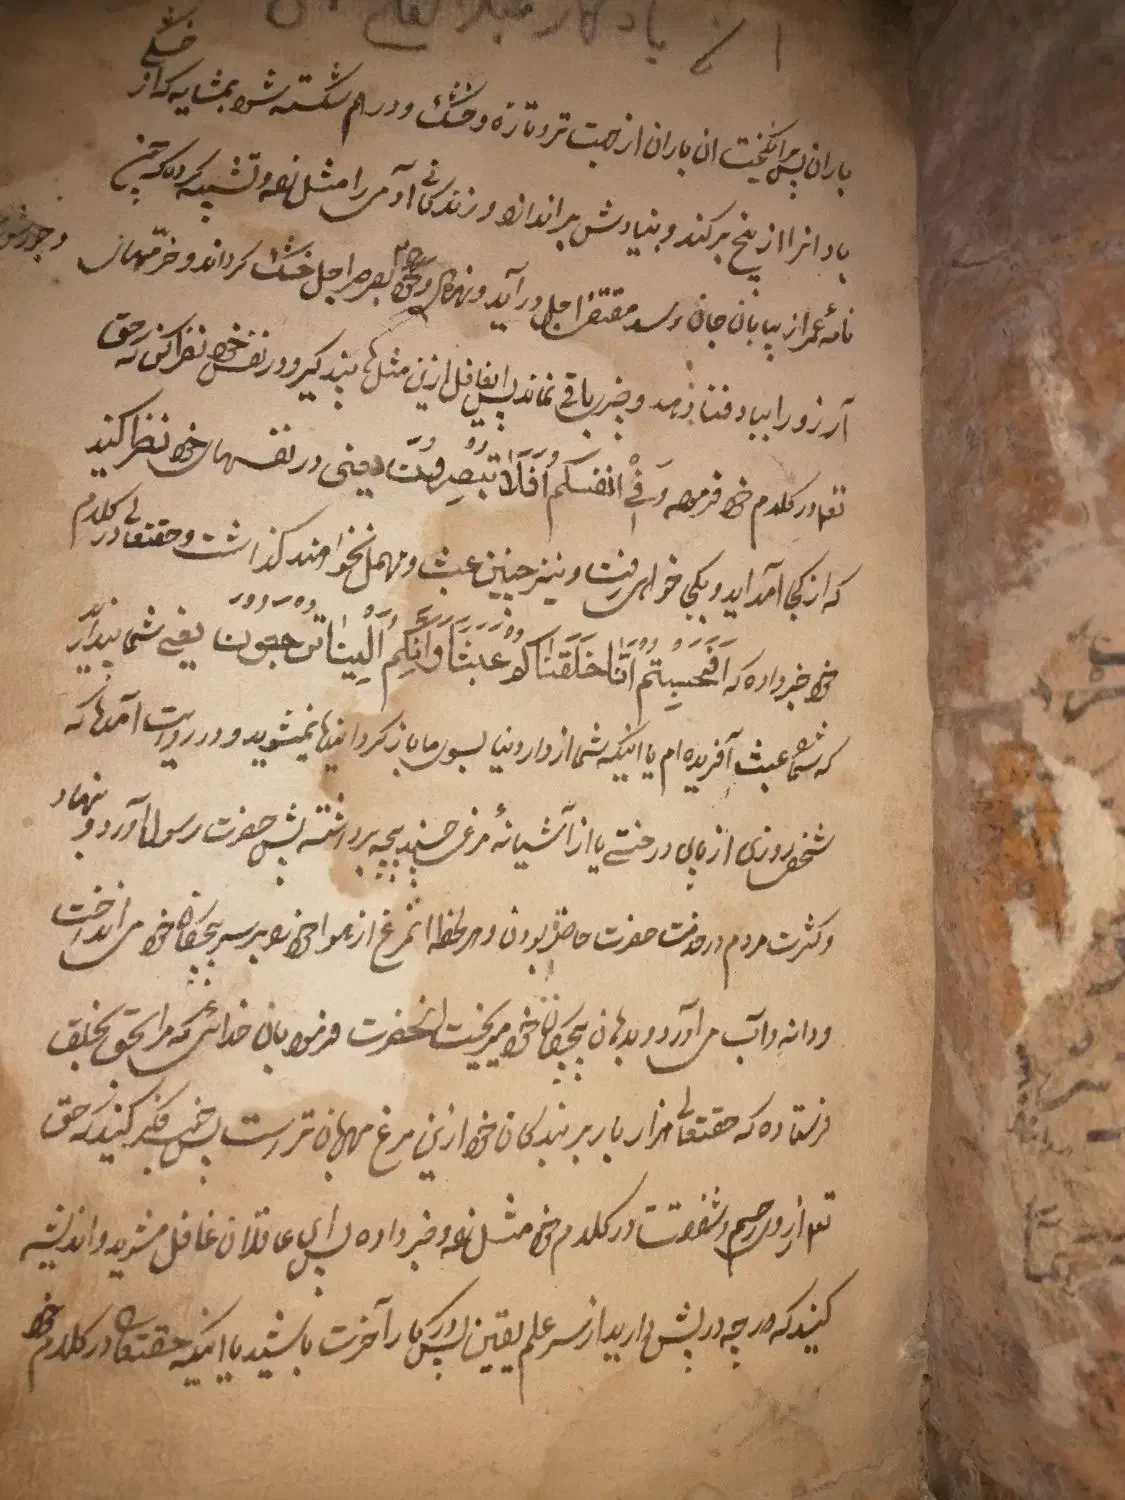 یادگار
باران پس برانگیخت ان باران از حبت تر و تازه و خشک و درهم شکسته شود بمشابه که او خشکی
باد انرا از بیخ برکند و بنیادش براندازد و زندکانی آدمی را مثل زده و تشبیه کرده که چون
نامهٔ عمر از بیابان جان رسد اجل درآید و نهال بصرصر اجل خشک کرداند و خرمنهای
آرزو را بباد فنا دهد و خبری باقی نماند پس ایغافل ازین مثلها پند کیر و در نفس خود نظر کن که حق
تعا در کلام خود فرموده وَفِی انفسکم اَفَلَا تبصِرونَ یعنی در نفسهای خود نظر کنید
که از کجا آمده اید و بکجا خواهی رفت و نیز چنین عبث و مهمل نخواهند کذاشت و حقتعالی در کلام
خود خبر داده که اَفَحَسِبتم اَنَّمَا خَلَقنَاکُم عَبَثًا وَاَنَّکُم اِلَینَا لاتُرجَعُون یعنی شما پندارید
که شما عبث آفریده ام یا اینکه شما از دار دنیا بسوی ما باز کردانیدها نمیشوید و در روایت آمدها که
شخصی روزی از پای درختی یا از آشیانهٔ مرغی چند بچه برداشته پیش حضرت رسول آورد و نهاد
و کثرت مردم در خدمت حضرت حاضر بودن و هر لحظه انمرغ از هوا خود بر سر بچکان خود می انداخت
و دانه و آب می آورد و بدهان بچکان خود میریخت انحضرت فرمود بان خدائی که مرا بحق بخلق
فرستاده که حقتعالی هزار بار بر بندکان خود ازین مرغ مهربان تر است پس فکر کنید که حق
تعا از روی رحم و شفقت در کلام خود مثل زده و خبر داده پس ای عاقلان غافل مشوید و اندیشه
کنید که هر چه در پیش دارید از سر علم یقین پس در کار آخرت باشید یا اینکه حقتعالی در کلام خود